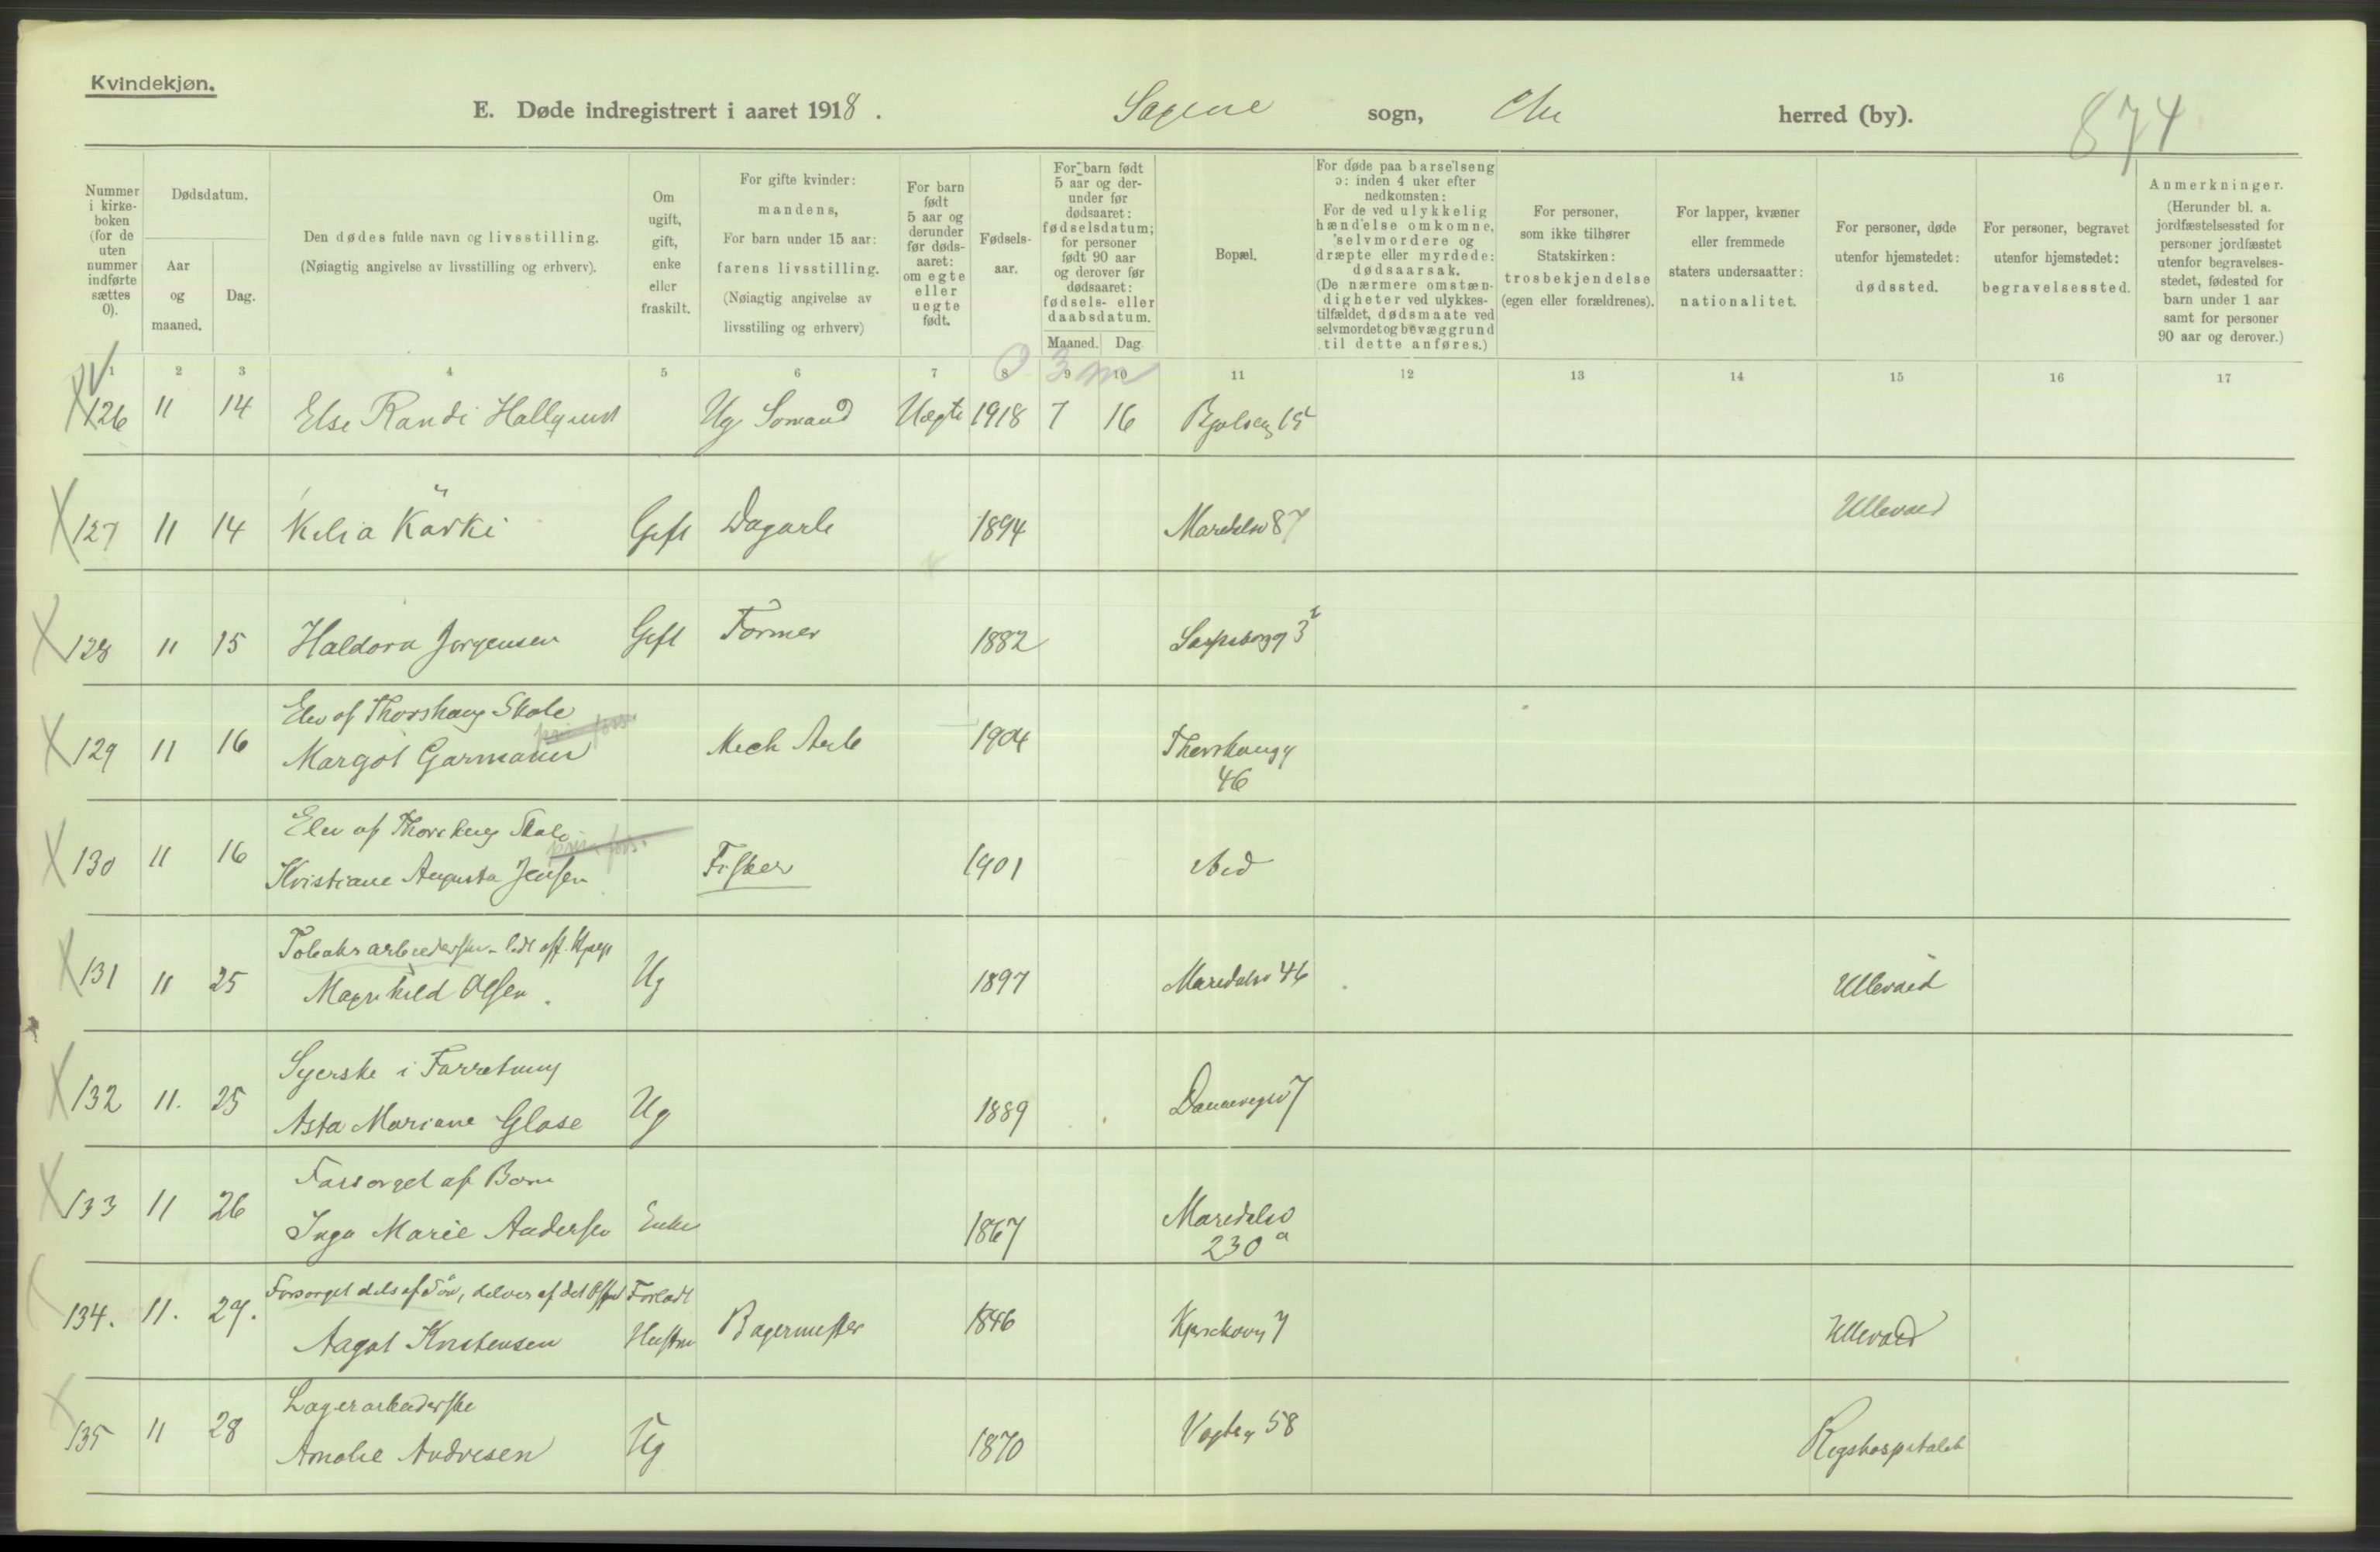 Kvindekjøn.
E. Døde indregistrert i aaret 1918. Sagene sogn, Chr herred (by). 874
Nummer i kirke-boken (for de uten nummer indførte sættes 0).
Dødsdatum.
Aar og maaned.
Dag.
Den dødes fulde navn og livsstilling.
(Nøiagtig angivelse av livsstilling og erhverv).
Om ugift, gift, enke eller fraskilt.
For gifte kvinder: mandens,
For barn under 15 aar: farens livsstilling.
(Nøiagtig angivelse av livsstiling og erhverv)
For barn født 5 aar og derunder før døds-aaret: om egte eller uegte født.
Fødsels-aar.
For barn født 5 aar og der-under før dødsaaret: fødselsdatum; for personer født 90 aar og derover før dødsaaret: fødsels- eller daabsdatum.
Maaned. Dag
Bopæl.
For døde paa barselseng ɔ: inden 4 uker efter nedkomsten:
For de ved ulykkelig hændelse omkomne, selvmordere og dræpte eller myrdede: dødsaarsak.
(De nærmere omstæn-digheter ved ulykkes-tilfældet, dødsmaate ved selvmordet og bevæggrund til dette anføres.)
For personer, som ikke tilhører Statskirken: trosbekjendelse (egen eller forældrenes).
For lapper, kvæner eller fremmede staters undersaatter: nationalitet.
For personer, døde utenfor hjemstedet: dødssted.
For personer, begravet utenfor hjemstedet: begravelsessted.
Anmerkninger.
(Herunder bl. a. jordfæstelsessted for personer jordfæstet utenfor begravelses-stedet, fødested for barn under 1 aar samt for personer 90 aar og derover.)
1 2 3 4 5 6 7 8 9 10 11 12 13 14 15 16 17
0 3 m
126 11 14 Else Randi Hallqvist Ug Sømand Uegte 1918 7 16 15
127 11 14 Kärki Gift Dagarb 1894 Maridalsv 87 Ullevaal
128 11 15 Haldora Jørgensen Gift Former 1882 Sarpsborgg 3
Elev af Thorshaug Skole
129 11 16 Margot Garmann Mech Arb 1904 Thorshaugg 46
Elev af Thorshaug Skole
130 11 16 Kristiane Augusta Jensen Fisker 1901 ibid
Tobaksarbeiderske
131 11 25 Magnhild Olsen Ug 1897 Maridalsv 46 Ullevaal
Syerske i Forretning
132 11. 25 Asta Mariane Glase Ug 1889 Dannevigsv 7
Forsørget af Børn
133 11 26 Inga Marie Andersen Enke 1867 Maridalsv 230 a
Forsørget dels af Søn, delvis af det Off Forladt
134. 11. 27. Aagot Kristensen Hustru Bagermester 1846 7 Ullevaal
Lagerarbeiderske
135 11 28 Amalie Andresen Ug 1870 Vogtsg 58 Rigshospitalet